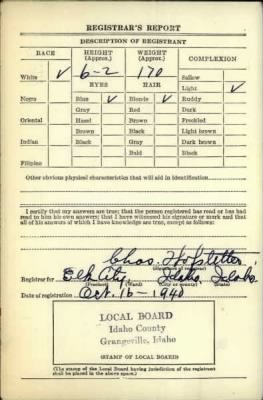 REGISTRAR'S REPORT
DESCRIPTION OF REGISTRANT
RACE HEIGHT (Approx.) WEIGHT (Approx.) COMPLEXION
White ✓ 6-2 170 Sallow
EYES HAIR Light ✓
Negro Blue ✓ Blonde ✓ Ruddy
Gray Red Dark
Oriental Hazel Brown Freckled
Brown Black Light brown
Indian Black Gray Dark brown
Bald Black
Filipino
Other obvious physical characteristics that will aid in identification
I certify that my answers are true; that the person registered has read or has had
to him his own answers; that I have witnessed his signature or mark and that
all of his answers of which I have knowledge are true, except as follows:
Chas. Hofstetter
(Signature of registrar)
Registrar for Elk City, Idaho, Idaho
(Precinct) (Ward) (City or county) (State)
Date of registration Oct. 16-1940
LOCAL BOARD
Idaho County
Grangeville, Idaho
(STAMP OF LOCAL BOARD)
(The stamp of the Local Board having jurisdiction of the registrant
shall be placed in the above space.)